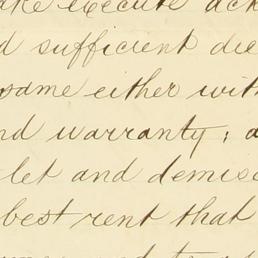 ake execute ack
d sufficient dee
same either with
nd warranty; a
let and demise
best rent that